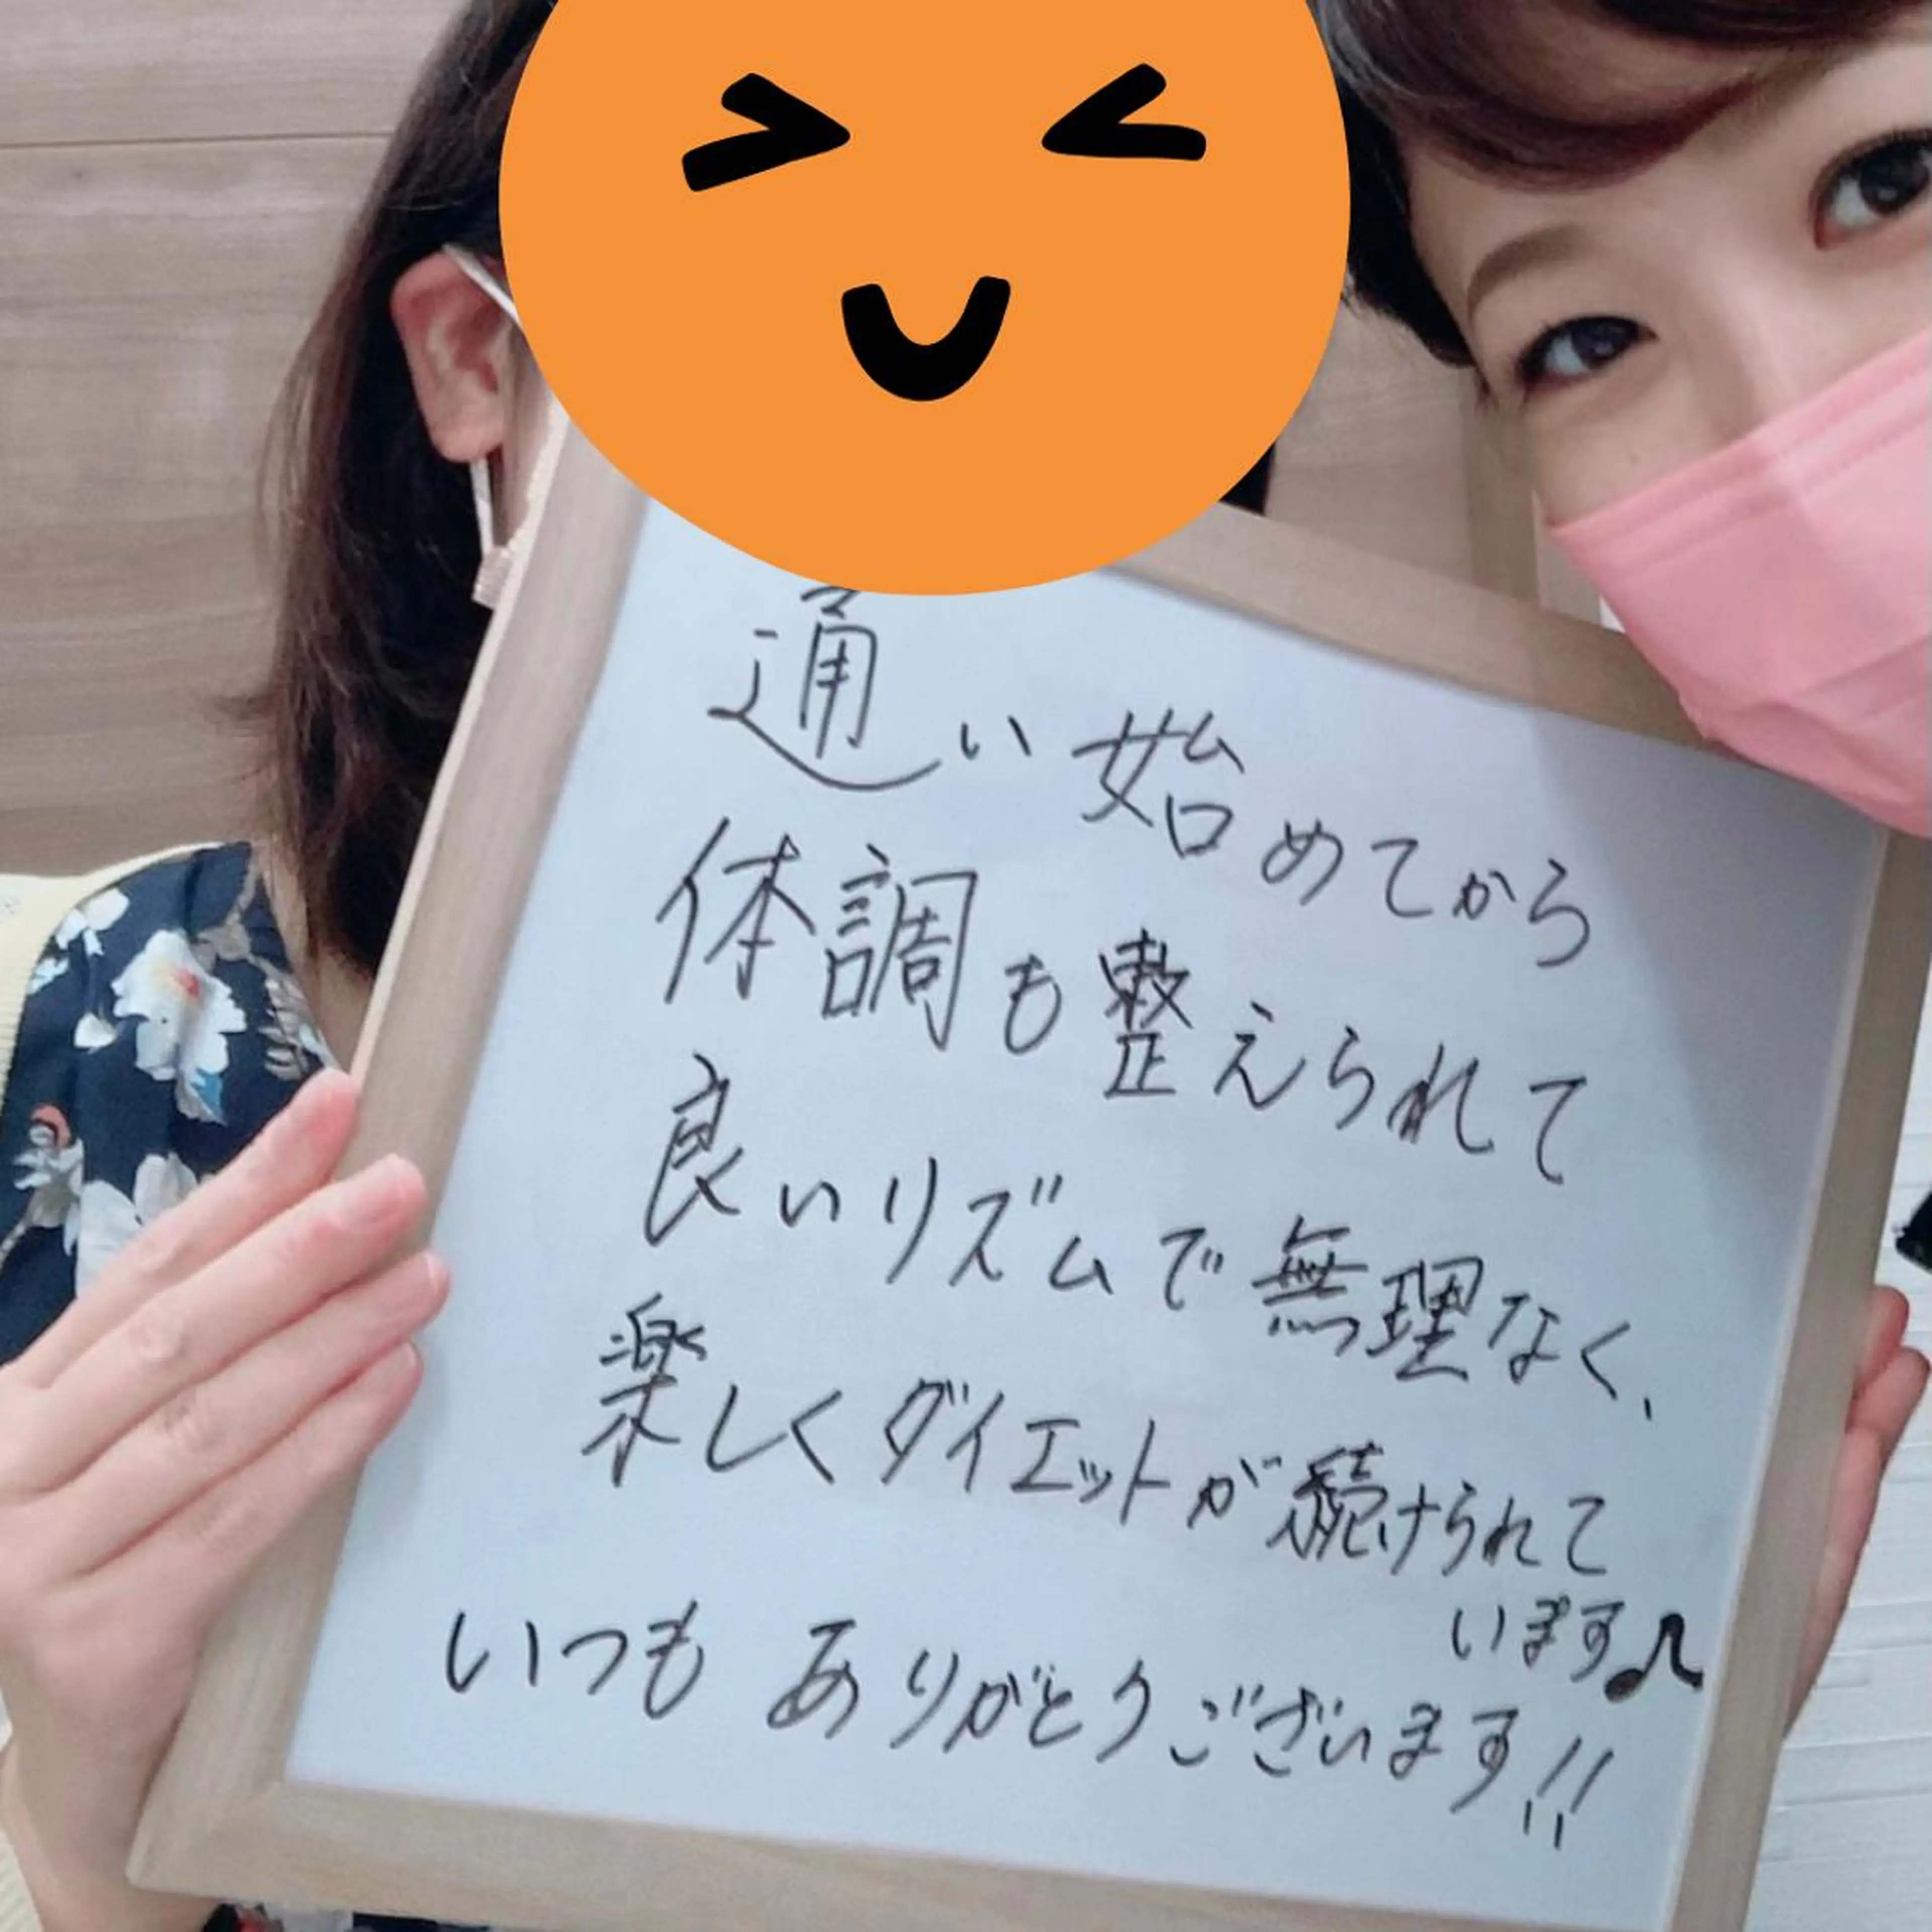 通い始めてから
体調も整えられて
良いリズムで無理なく、
楽しくダイエットが続けられて
います♪
いつもありがとうございます!!